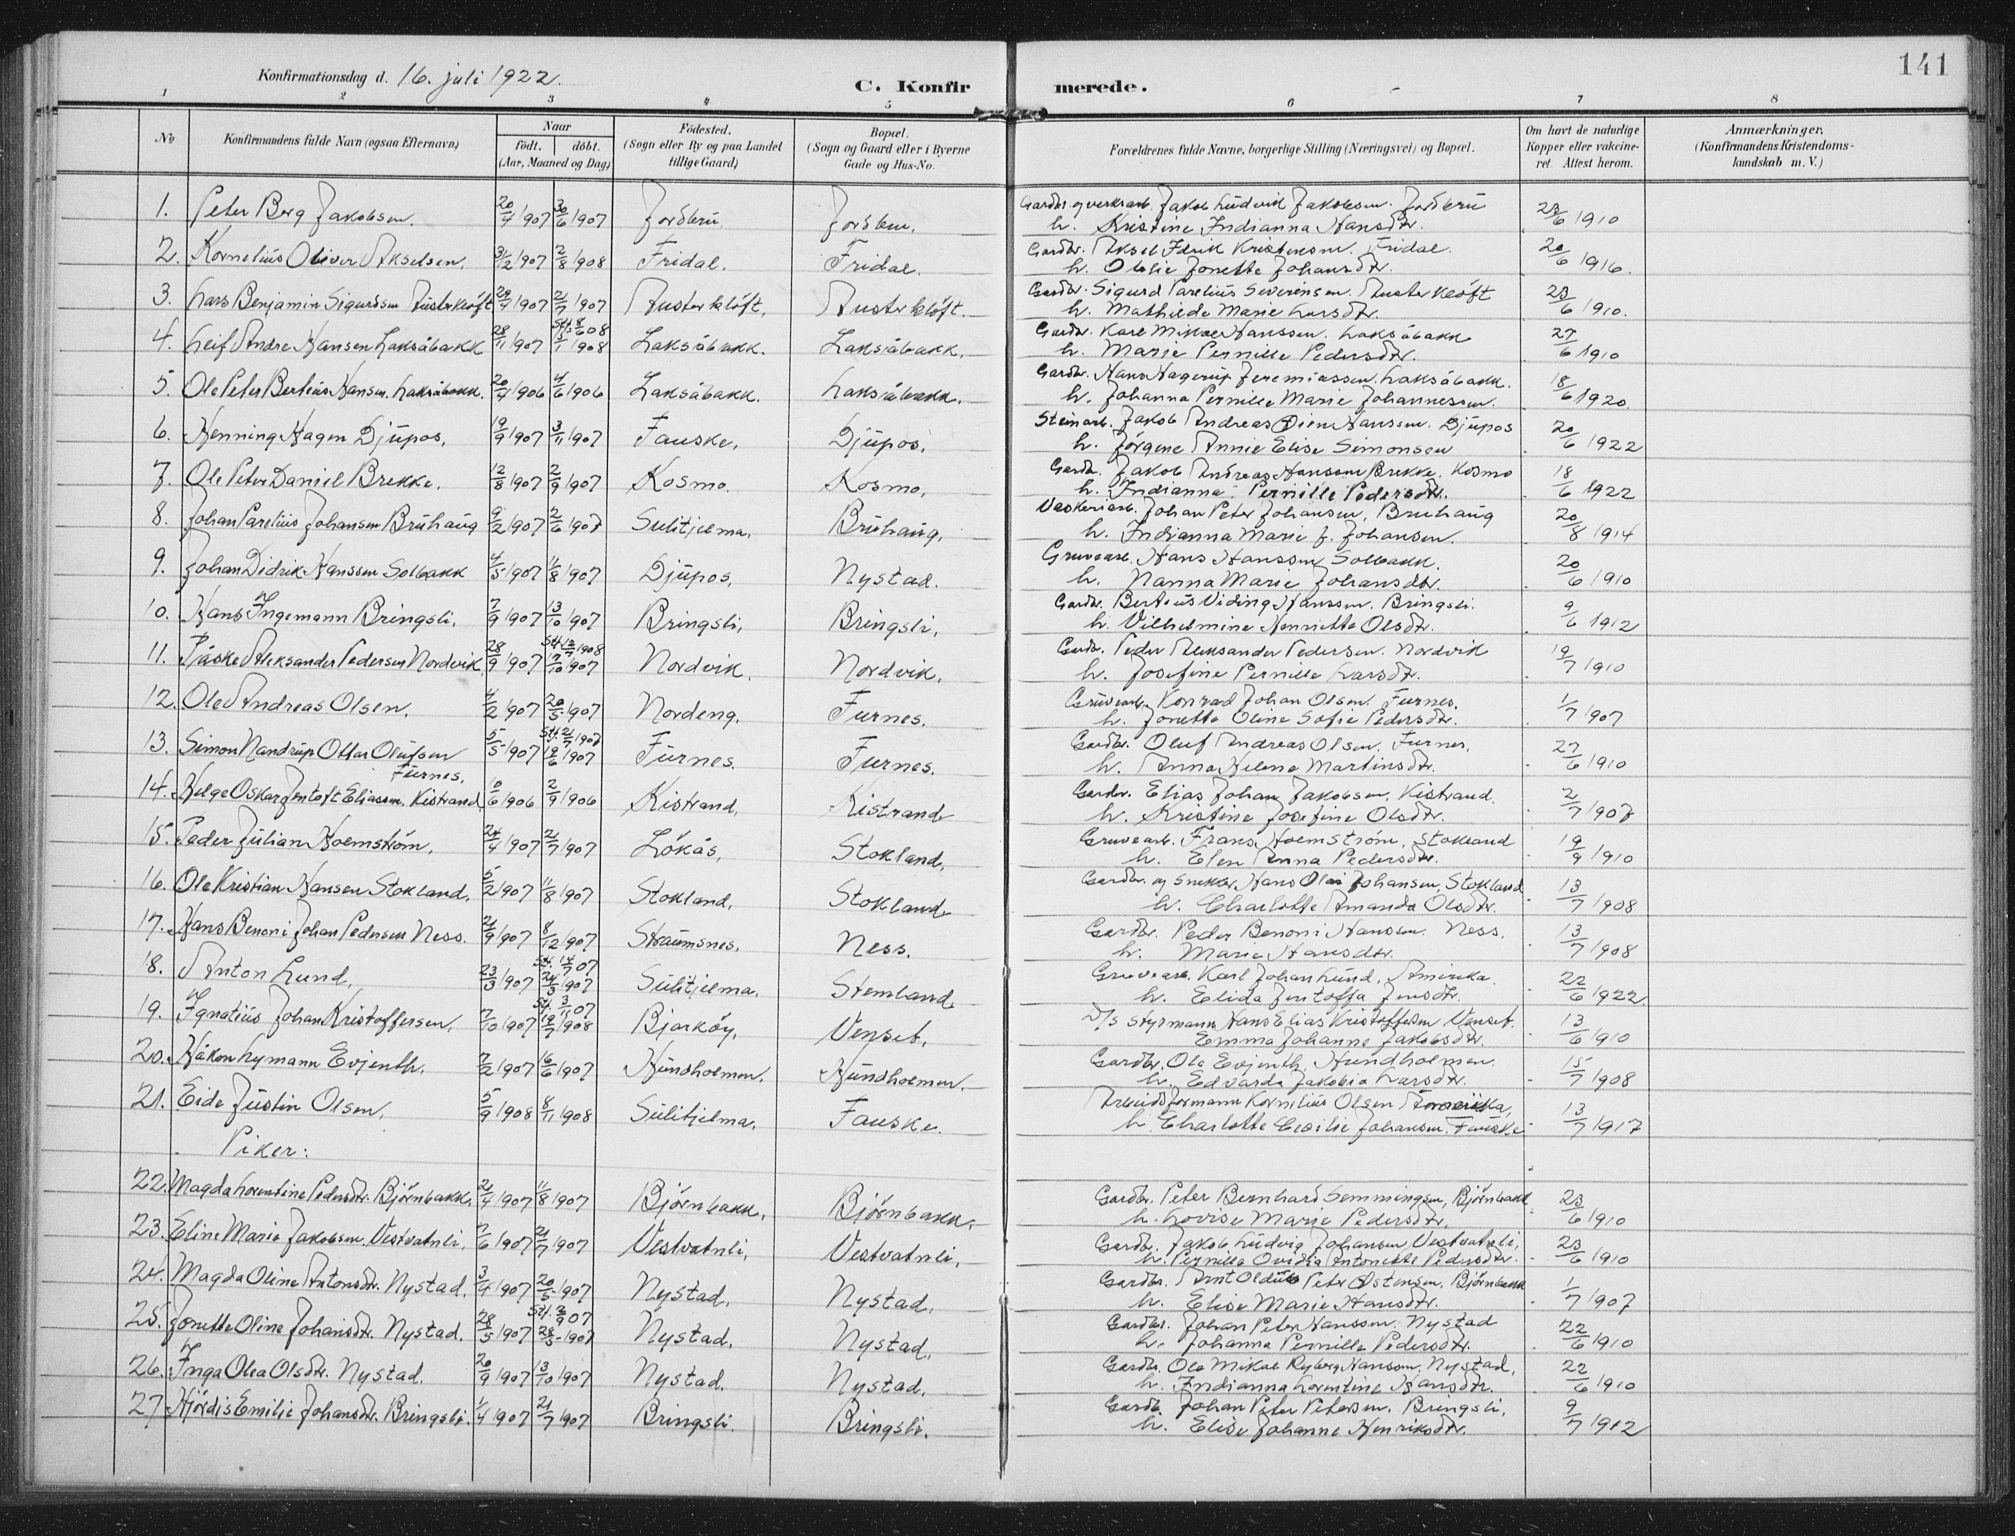 141
Konfirmationsdag d. 16. juli 1922.
C. Konfirmerede.
1 2 3 4 5 6 7 8
No
Konfirmandens fulde Navn (ogsaa Efternavn)
Naar
födt. döbt.
(Aar, Maaned og Dag)
Födested.
(Sogn eller By og paa Landet
tillige Gaard)
Bopæl.
(Sogn og Gaard eller i Byerne
Gade og Hus-No.
Forældrenes fulde Navne, borgerlige Stilling (Næringsvei) og Bopæl.
Om havt de naturlige
Kopper eller vakcine-
ret. Attest herom.
Anmærkninger.
(Konfirmandens Kristendoms-
kundskab m. V.)
1. Peter Berg Jakobsen. 20/4 1907 30/6 1907 Jordbru. Jordbru. Gardbr. og verksarb. Jakob Ludvik Jakobsen. Jordbru 23/6 1910
h. Kristine Indianna Hansdtr.
2. Kornelius Oliver Akselsen. 31/12 1907 2/8 1908 Fridal. Fridal. Gardbr. Aksel Fdrik Kristensen. Fridal. 20/6 1916.
h. Oldie Jonette Johansdtr.
3. Lars Benjamin Sigurdsen Austerklöft 29/4 1907 21/7 1907 Austerklöft. Austerklöft. Gardbr. Sigurd Parelius Severinsen. Austerklöft 23/6 1910.
h. Mathilde Marie Larsdtr.
4. Leif Andre Hansen Laksåbakk 28/11 1907 1908 Laksåbakk. Laksåbakk. Gardbr. Karl Mikael Hanssen. Laksåbakk 27/6 1910
h. Marie Pernille Pedersdtr.
5. Ole Peter Bertius Hansen. Laksåbakk. 20/4 1906 4/6 1906 Laksåbakk. Laksåbakk. Gardbr. Hans Hagerup Jeremiassen. Laksåbakk. 18/6 1920.
h. Johanna Pernille Marie Johannessen.
6. Henning Hagen Djupos. 19/9 1907 3/11 1907 Fauske. Djupos. Steinarb. Jakob Andreas Dien Hanssen. Djupos 20/6 1922
h. Jörgene Annie Elise Simonsen
7. Ole Peter Daniel Brekke. 12/8 1907 2/9 1907 Kosmo. Kosmo. Gardbr. Jakob Andreas Hanssen Brekke, Kosmo 18/6 1922
h. Indianna Pernille Pedersdtr.
8. Johan Parelius Johansen Bruhaug 9/2 1907 2/6 1907 Sulitjelma. Bruhaug. Vaskeriarb. Johan Peter Johansen, Bruhaug 20/8 1914
h. Indianna Marie J. Johansen.
9. Johan Didrik Hanssen Solbakk 4/5 1907 11/8 1907 Djupos. Nystad. Gruvearb. Hans Hanssen Solbakk. 20/6 1910
h. Nanna Marie Johansdtr.
10. Hans Ingemann Bringsli. 7/9 1907 13/10 1907 Bringsli. Bringsli. Gardbr. Bertius Viding Hanssen. Bringsli. 9/6 1912
h. Vilhelmine Henriette Olsdtr.
11. Påske Aleksander Pedersen Nordvik 28/9 1907 1907 Nordvik. Nordvik. Gardbr. Peder Aleksander Pedersen. Nordvik 19/7 1910
h. Josefine Pernille Larsdtr.
12. Ole Andreas Olsen. 4/2 1907 20/5 1907 Nordeng. Furnes. Gruvearb. Konrad Johan Olsen. Furnes. 1/7 1907
h. Jonette Oline Sofie Pedersdtr.
13. Simon Nandrup Ottar Olufsen 5/5 1907 1907 Furnes. Furnes. Gardbr. Oluf Andreas Olsen. Furnes, 27/6 1910
Furnes. h. Anna Helene Martinsdtr.
14. Helge Oskar Jentoft Eliassen. Kistrand 6/6 1906 2/9 1906 Kistrand. Kistrand Gardbr. Elias Johan Jakobsen, Kistrand. 2/7 1907
h. Kristine Josefine Olsdtr.
15. Peder Julian Holmström. 24/4 1907 21/7 1907 Lökås. Stokland. Gruvearb. Frans Holmström, Stokland 19/9 1910
h. Elen Anna Pedersdtr.
16. Ole Kristian Hansen Stokland. 5/2 1907 11/8 1907 Stokland. Stokland Gardbr. og Snekker Hans Olai Johansen, Stokland 13/7 1908
h. Charlotte Amanda Olsdtr.
17. Hans Benoni Johan Pedersen Ness. 21/9 1907 8/12 1907 Straumsnes. Ness. Gardbr. Peder Benoni Hanssen. Ness. 13/7 1908
h. Marie Hansdtr.
18. Anton Lund. 23/3 1907 St. 14/7 07 24/3 1907 Sulitjelma. Stemland Gruvearb. Karl Johan Lund. Amerika. 22/6 1922
h. Elida Jentoffa Jensdtr.
19. Ignatius Johan Kristoffersen. 7/10 1907 St. 3/11 07 19/7 1908 Bjarköy. Venset. D/s Styrmann Hans Elias Kristoffersen Venset. 13/6 1910
Emma Johanne Jakobsdtr.
20. Håkon Lymann Evjenth. 7/2 1907 16/6 1907 Hundholmen. Hundholmen. Gardbr. Ole Evjenth, Hundholmen. 15/7 1908
h. Edvarda Jakobia Larsdtr.
21. Eide Justin Olsen. 5/9 1908 8/11 1908 Sulitjelma. Fauske. Arbeidsformann Kornilius Olsen Amerika, 13/7 1917
h. Charlotte Cesilie Johansen. Fauske
Piker:
22. Magda Lorentine Pedersdtr. Björnbakk. 21/4 1907 11/8 1907 Björnbakk. Björnbakk. Gardbr. Peter Bernhard Semmingsen, Björnbakk 23/6 1910
h. Lovise Marie Pedersdtr.
23. Eline Marie Jakobsen Vestvatnli. 7/6 1907 21/7 1907 Vestvatnli. Vestvatnli. Gardbr. Jakob Ludvig Johansen Vestvatnli, 23/6 1910
h. Pernille Ovidia Antonette Pedersdtr.
24. Magda Oline Antonsdtr. Nystad. 3/4 1907 20/5 1907 Nystad. Nystad. Gardbr. Arnt Peter Östensen, Björnbakk 1/7 1907
h. Elise Marie Hansdtr.
25. Jonette Oline Johansdtr. Nystad. 28/5 1907 1907 Nystad. Nystad. Gardbr. Johan Peter Hanssen. Nystad 22/6 1910
h. Johanna Pernille Pedersdtr.
26. Inga Olea Olsdtr. Nystad. 20/9 1907 13/10 1907 Nystad. Nystad. Gardbr. Ole Mikal Ryberg Hanssen, Nystad, 22/6 1910
h. Indianna Lorentine Hansdtr.
27. Hjördis Emilie Johansdtr. Bringsli. 1/4 1907 21/7 1907 Bringsli. Bringsli. Gardb. Johan Peter Petersen. Bringsli, 9/7 1912
h. Elise Johanne Henriksdtr.